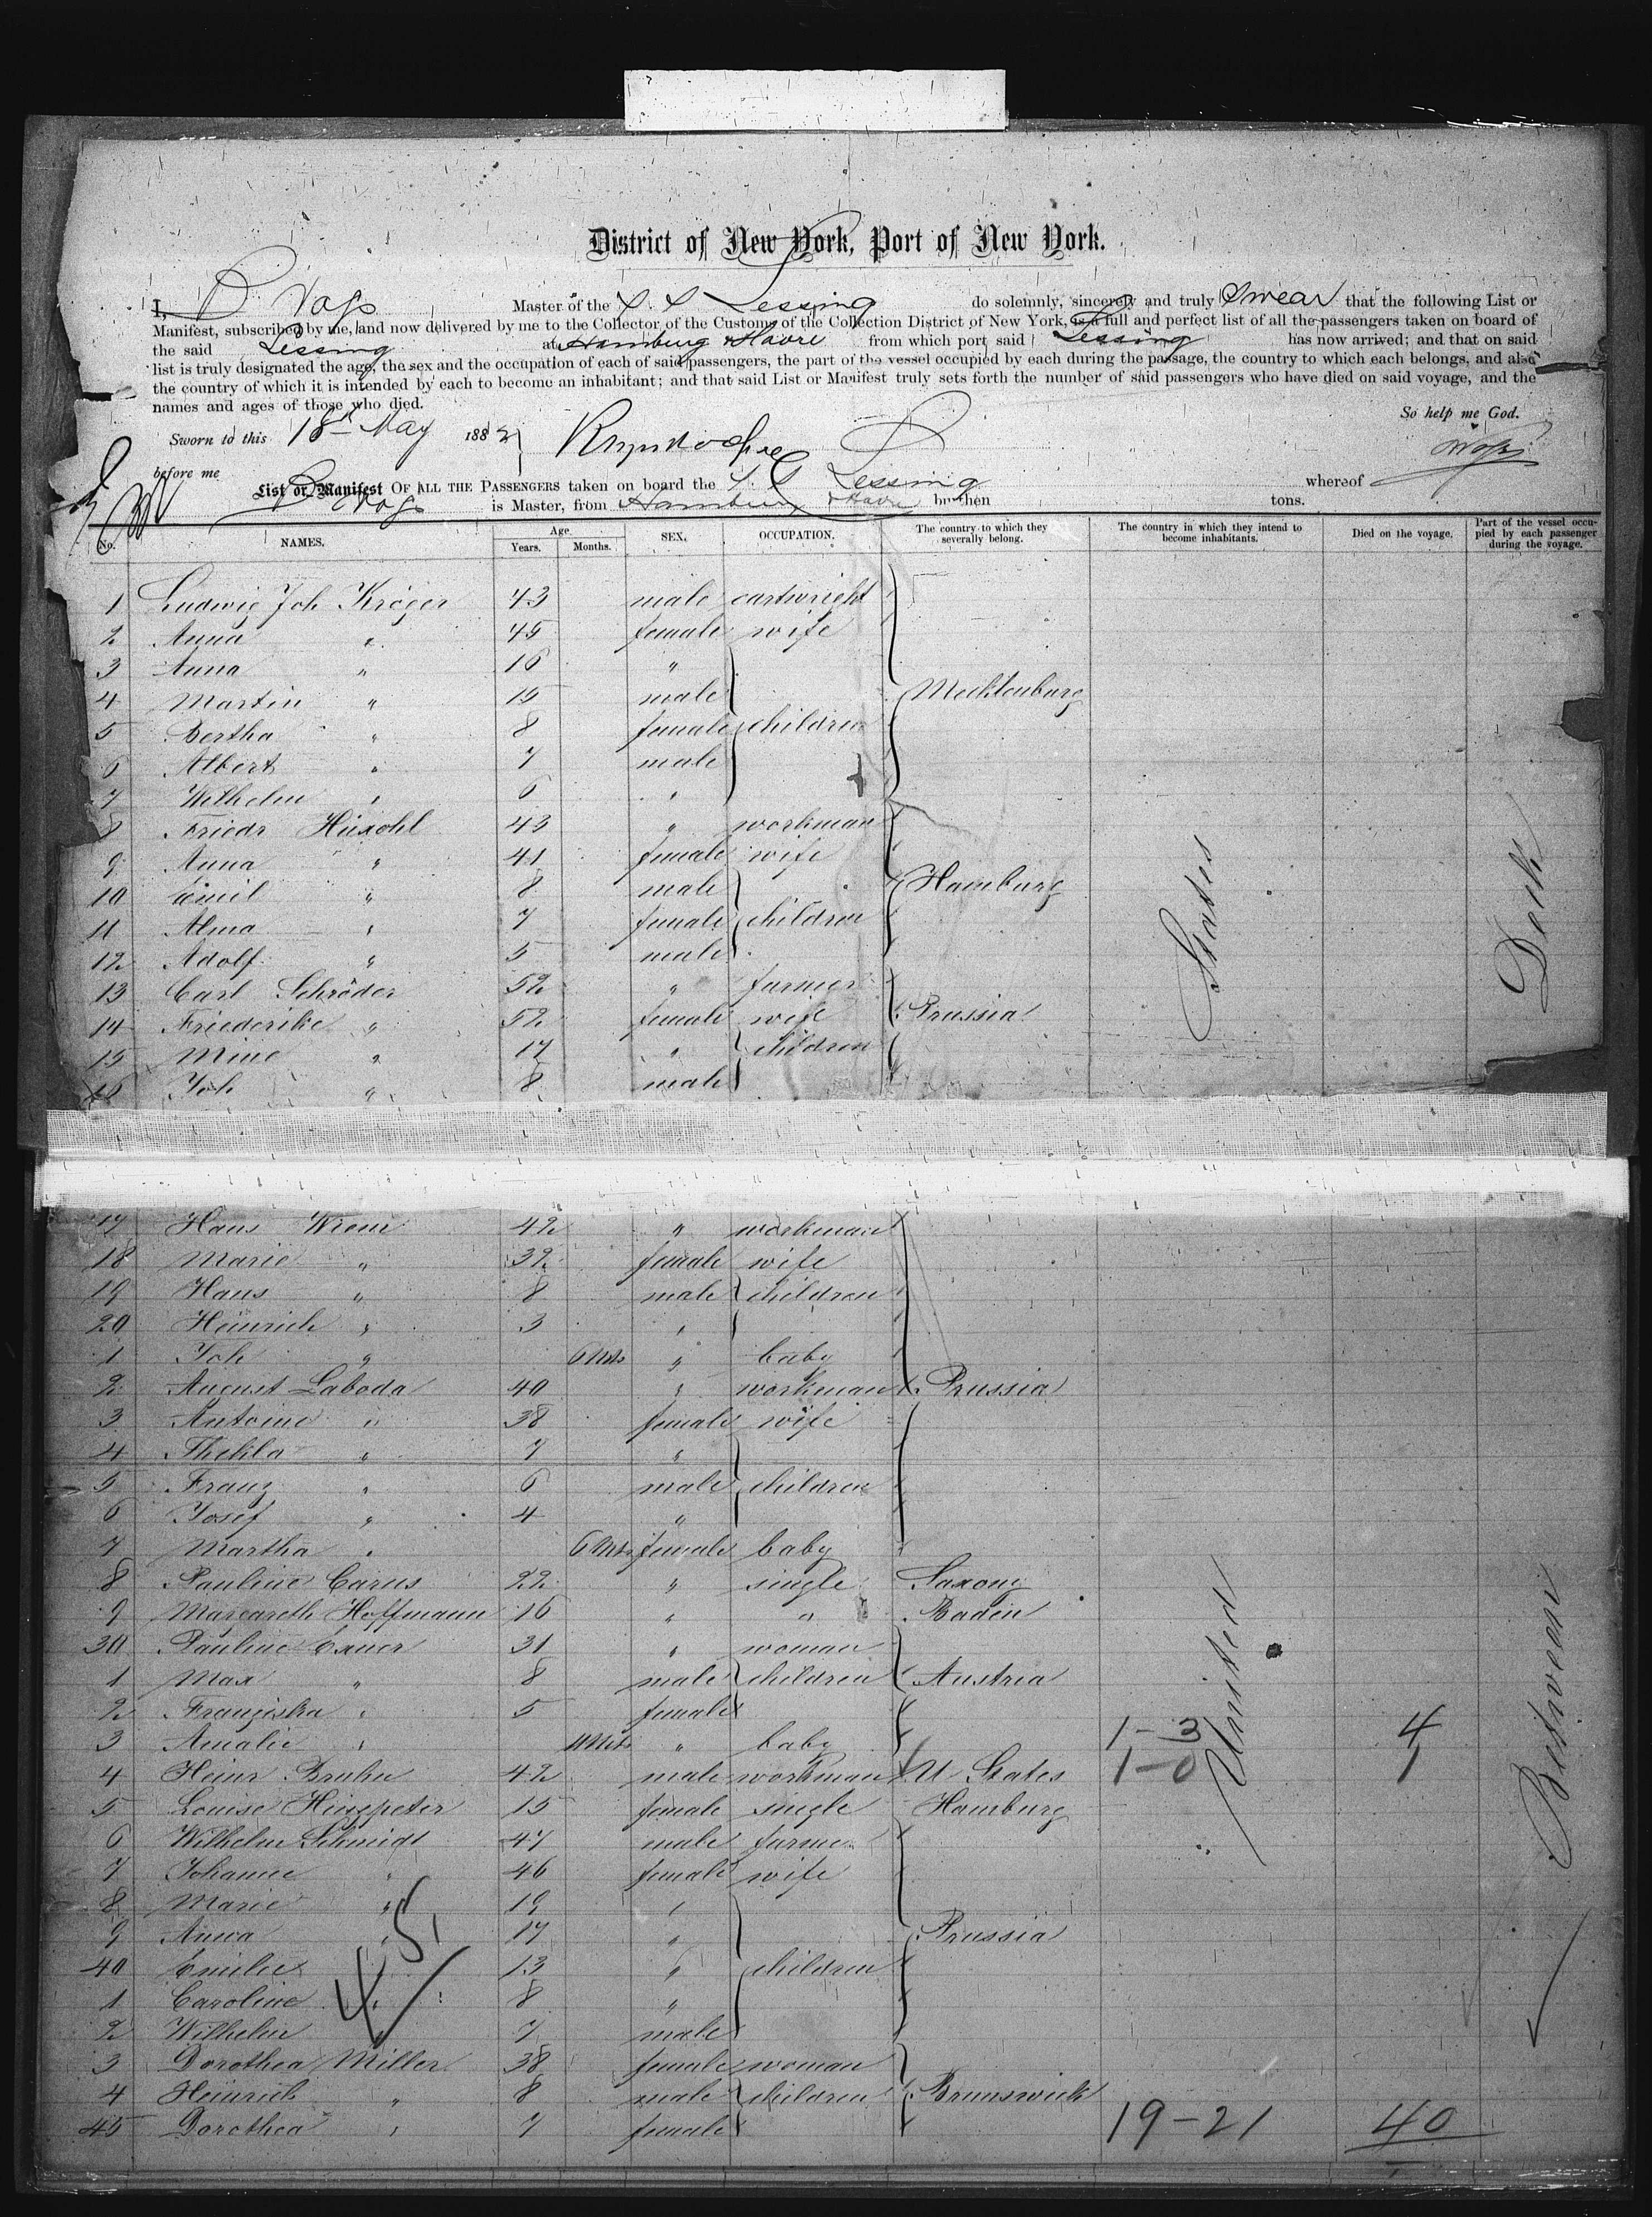 District of New York, Port of New York.
I, D Voss Master of the S. S. Lessing do solemnly, sincerely and truly Swear that the following List or
Manifest, subscribed by me, and now delivered by me to the Collector of the Customs of the Collection District of New York, is a full and perfect list of all the passengers taken on board of
the said Lessing at Hamburg & Havre from which port said Lessing has now arrived; and that on said
list is truly designated the age, the sex and the occupation of each of said passengers, the part of the vessel occupied by each during the passage, the country to which each belongs, and also
the country of which it is intended by each to become an inhabitant; and that said List or Manifest truly sets forth the number of said passengers who have died on said voyage, and the
names and ages of those who died.
So help me God.
Sworn to this 18th May 1882
Voss
before me
List or Manifest OF ALL THE PASSENGERS taken on board the S. S. Lessing whereof
D Voss is Master, from Hamburg & Havre burthen tons.
No. NAMES. Age Years. Months. SEX. OCCUPATION. The country to which they severally belong. The country in which they intend to become inhabitants. Died on the voyage. Part of the vessel occupied by each passenger during the voyage.
1 Ludwig Joh Kröger 43 male cartwright
2 Anna " 45 female wife
3 Anna " 16 "
4 Martin " 15 male Mecklenburg
5 Bertha " 8 female children
6 Albert " 7 male
7 Wilhelm " 6 "
8 Friedr Hüxohl 43 " workman
9 Anna " 41 female wife
10 Emil " 8 male Hamburg
11 Alma " 7 female children
12 Adolf " 5 male
13 Carl Schröder 52 " farmer
14 Friederike " 52 female wife Prussia
15 Mine " 17 " children
16 Joh " 8 male
17 Hans Wiem 42 " workman
18 Marie " 39 female wife
19 Hans " 8 male children
20 Heinrich " 3 "
1 Joh " 6 Mts " baby
2 August Laboda 40 " workman Prussia
3 Antoine " 38 female wife
4 Thekla " 7 "
5 Franz " 6 male children
6 Josef " 4 "
7 Martha " 6 Mts female baby
8 Pauline Carus 22 " single Saxony
9 Margareth Hoffmann 16 " " Baden
30 Pauline Exner 31 " woman
1 Max " 8 male children Austria
2 Franziska " 5 female
3 Amalie " 11 Mts " baby 1-3 4
4 Heinr Bruhn 42 male workman U States 1-0 1
5 Louise Hinzpeter 15 female single Hamburg
6 Wilhelm Schmidt 47 male farmer
7 Johanne " 46 female wife
8 Marie " 19 "
9 Anna " 17 " Prussia
40 Emilie " 13 " children
1 Caroline " 8 "
2 Wilhelm " 7 male
3 Dorothea Miller 38 female woman
4 Heinrich " 8 male children Brunswick
45 Dorothea " 7 female 19-21 40
45
United States
Between Deck